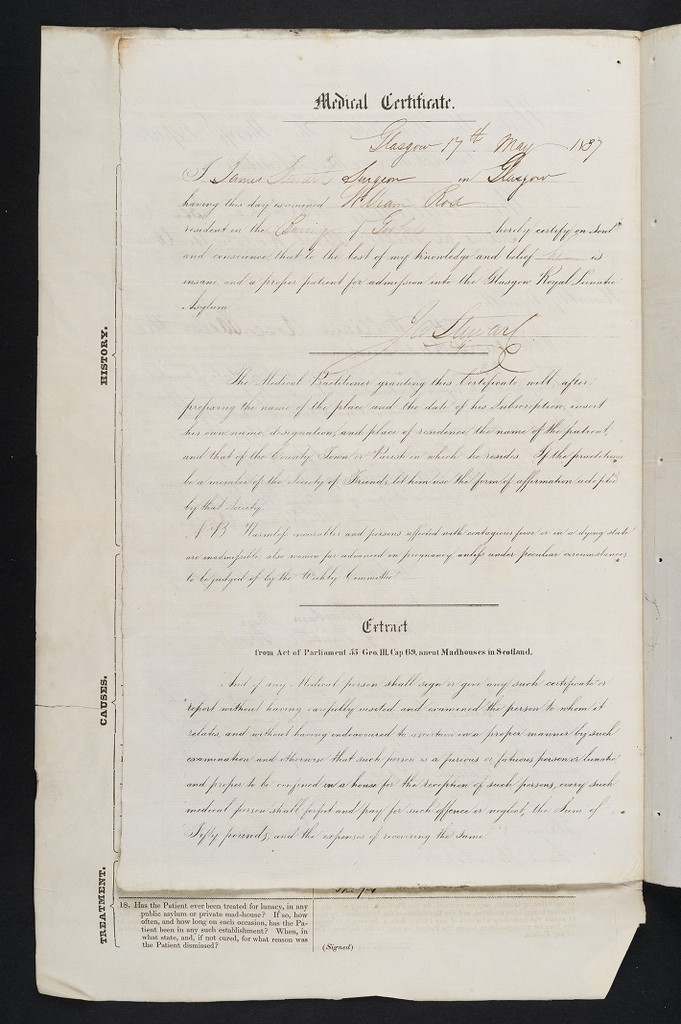 Medical Certificate.
Glasgow 17th May 1837
I James Stewart Surgeon in Glasgow
having this day examined William Ross
resident in the of hereby certify on soul
and conscience, that to the best of my knowledge and belief he is
insane and a proper patient for admission into the Glasgow Royal Lunatic
Asylum
Jas Stewart
The Medical Practitioner granting this Certificate, will, after
prefixing the name of the place and the date of his Subscription, insert
his own name, designation, and place of residence, the name of the patient,
and that of the County, Town or Parish in which he resides. If the practitioner
be a member of the Society of Friends, let him use the form of affirmation adopted
by that Society.
N.B. Harmless incurables and persons affected with contagious fever or in a dying state
are inadmissible, also women far advanced in pregnancy unless under peculiar circumstances
to be judged of by the Weekly Committee.
Extract
from Act of Parliament 55 Geo. III. Cap 69, anent Madhouses in Scotland.
And if any Medical person shall sign or give any such certificate or
report without having carefully visited and examined the person to whom it
relates, and without having endeavoured to ascertain in a proper manner by such
examination and otherwise that such person is a furious or fatuous person or lunatic
and proper to be confined in a house for the reception of such persons, every such
medical person shall forfeit and pay for such offence or neglect, the Sum of
Fifty pounds, and the expenses of recovering the same.
HISTORY.
CAUSES.
TREATMENT.
18. Has the Patient ever been treated for lunacy, in any
public asylum or private mad-house? If so, how
often, and how long on each occasion, has the Pa-
tient been in any such establishment? When, in
what state, and, if not cured, for what reason was
the Patient dismissed?
(Signed)